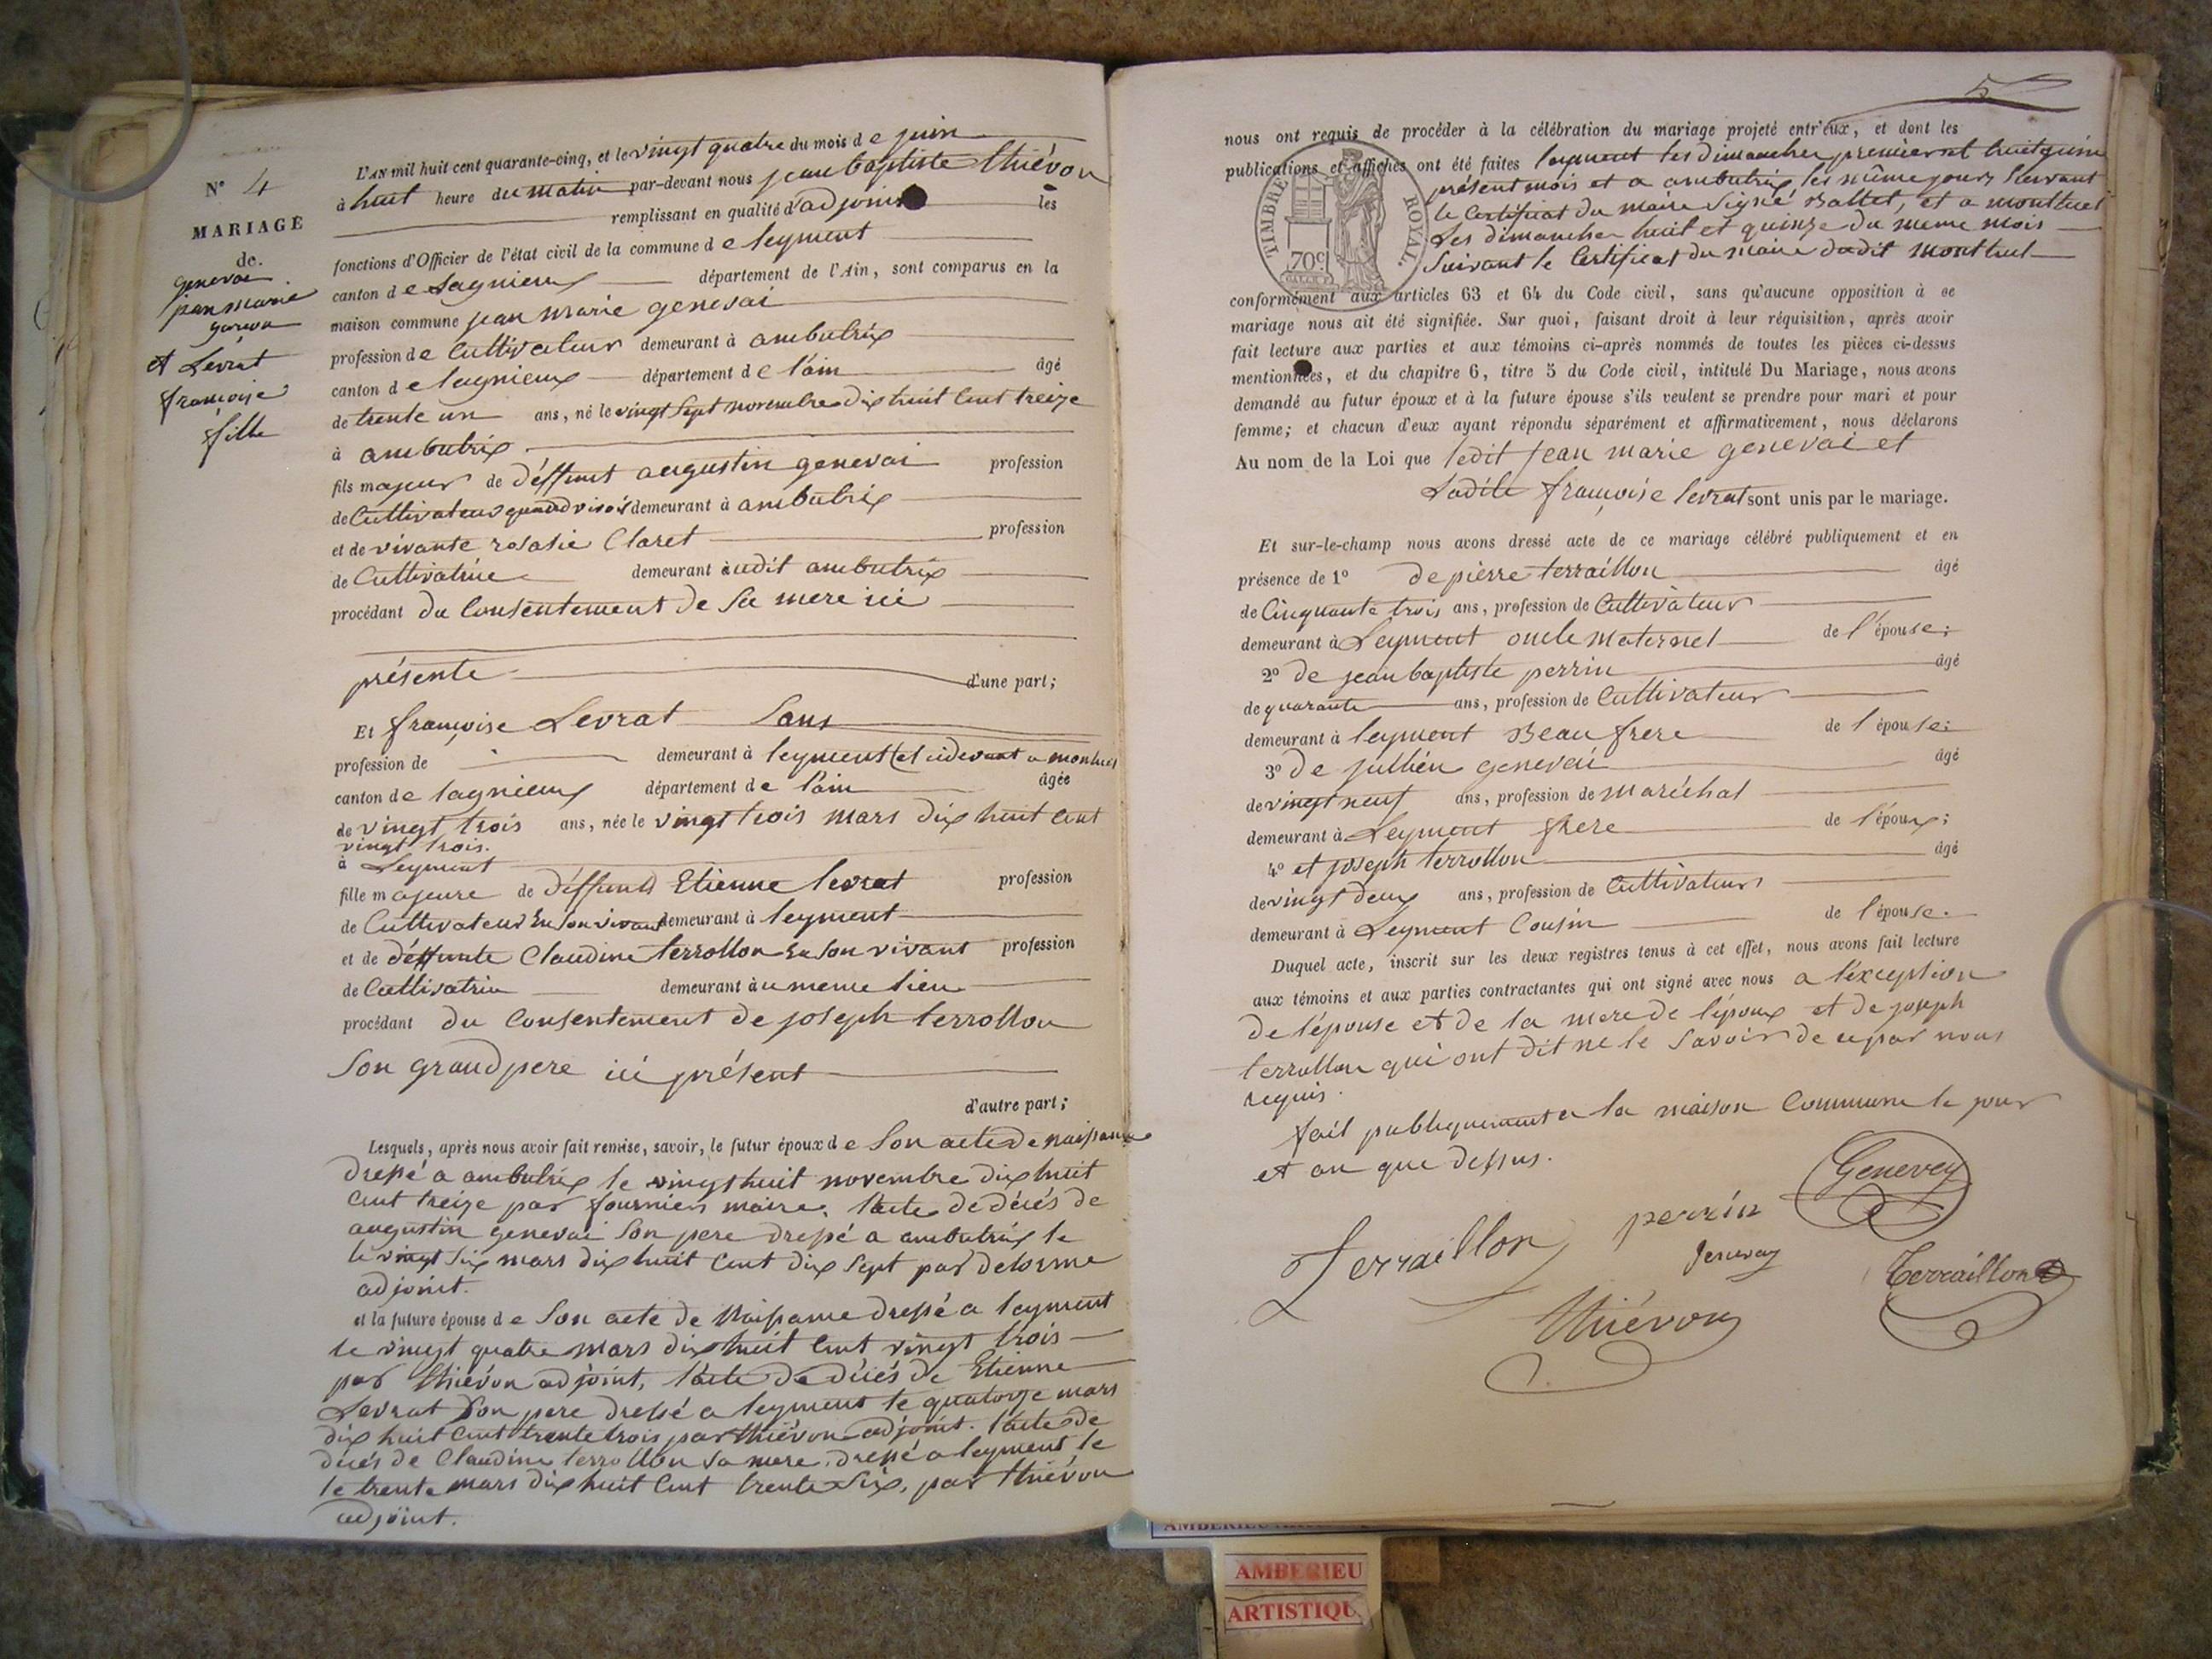 N° 4
MARIAGE
de
genevai
jean marie
garçon
et Levrat
françoise
fille
L'AN mil huit cent quarante-cinq, et le vingt quatre du mois de juin
à huit heure du matin par-devant nous jean baptiste thiévon
remplissant en qualité d'adjoint les
fonctions d'Officier de l'état civil de la commune de leyment
canton de Lagnieux département de l'Ain, sont comparus en la
maison commune jean marie genevai
profession de Cultivateur demeurant à ambutrix
canton de lagnieux département de l'ain âgé
de trente un ans, né le vingt sept novembre dix huit cent treize
à ambutrix
fils majeur de déffunt augustin genevai profession
de Cultivateur quand vivait demeurant à ambutrix
et de vivante rosalie Claret profession
de Cultivatrice demeurant audit ambutrix
procédant du Consentement de sa mere ici
présente d'une part;
Et françoise Levrat Sans
profession de demeurant à leyment et cidevant a montluel
canton de lagnieux département de l'ain âgée
de vingt trois ans, née le vingt trois mars dix huit cent
vingt trois.
à Leyment
fille majeure de déffunt Etienne levrat profession
de Cultivateur En son vivant demeurant à leyment
et de déffunte Claudine terrollon En son vivant profession
de Cultivatrice demeurant au meme lieu
procédant du Consentement de joseph terrollon
Son grand pere ici présent
d'autre part;
Lesquels, après nous avoir fait remise, savoir, le futur époux de Son acte de naissance
dressé a ambutrix le vingt huit novembre dix huit
cent treize par fournier maire, l'acte de décés de
augustin genevai Son pere dressé a ambutrix le
le vingt six mars dix huit cent dix sept par delorme
adjoint.
et la future épouse de Son acte de Naissance dressé a leyment
le vingt quatre mars dix huit cent vingt trois
par thiévon adjoint, l'acte de décés de Etienne
Levrat Son pere dressé a leyment le quatorze mars
dix huit cent trente trois par thiévon adjoint. l'acte de
décés de Claudine terrollon Sa mere, dressé a leyment le
le trente mars dix huit cent trente Six, par thiévon
adjoint.
5
nous ont requis de procéder à la célébration du mariage projeté entr'eux, et dont les
publications et affiches ont été faites leyment les dimanches premier et huit juin
présent mois et a ambutrix les même jours Suivant
le Certificat du maire Signé Ballet, et a montluel
Les dimanches huit et quinze du meme mois
Suivant le Certificat du maire dudit montluel
TIMBRE ROYAL.
70c
conformément aux articles 63 et 64 du Code civil, sans qu'aucune opposition à ce
mariage nous ait été signifiée. Sur quoi, faisant droit à leur réquisition, après avoir
fait lecture aux parties et aux témoins ci-après nommés de toutes les pièces ci-dessus
mentionnées, et du chapitre 6, titre 5 du Code civil, intitulé Du Mariage, nous avons
demandé au futur époux et à la future épouse s'ils veulent se prendre pour mari et pour
femme; et chacun d'eux ayant répondu séparément et affirmativement, nous déclarons
Au nom de la Loi que ledit jean marie genevai et
Ladite françoise levrat sont unis par le mariage.
Et sur-le-champ nous avons dressé acte de ce mariage célébré publiquement et en
présence de 1° de pierre terraillon âgé
de Cinquante trois ans, profession de Cultivateur
demeurant à Leyment oncle maternel de l'épouse;
2° de jean baptiste perrin âgé
de quarante ans, profession de Cultivateur
demeurant à leyment Beau frere de l'épouse;
3° de jullien genevai âgé
de vingt neuf ans, profession de maréchal
demeurant à Leyment frere de l'époux;
4° et joseph terrollon âgé
de vingt deux ans, profession de Cultivateur
demeurant à Leyment Cousin de l'épouse.
Duquel acte, inscrit sur les deux registres tenus à cet effet, nous avons fait lecture
aux témoins et aux parties contractantes qui ont signé avec nous a l'exception
de l'épouse et de la mere de l'époux et de joseph
terrollon qui ont dit ne le Savoir de ce par nous
requis.
fait publiquement a la maison Commune le jour
et an que dessus.
Genevey
Terraillon
perrin
Jenevay
Terraillon
thiévon
AMBERIEU
ARTISTIQU